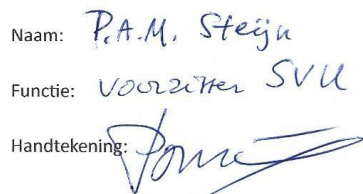 Naam: P.A.M. Steijn
Functie: Voorzitter SVU
Handtekening: